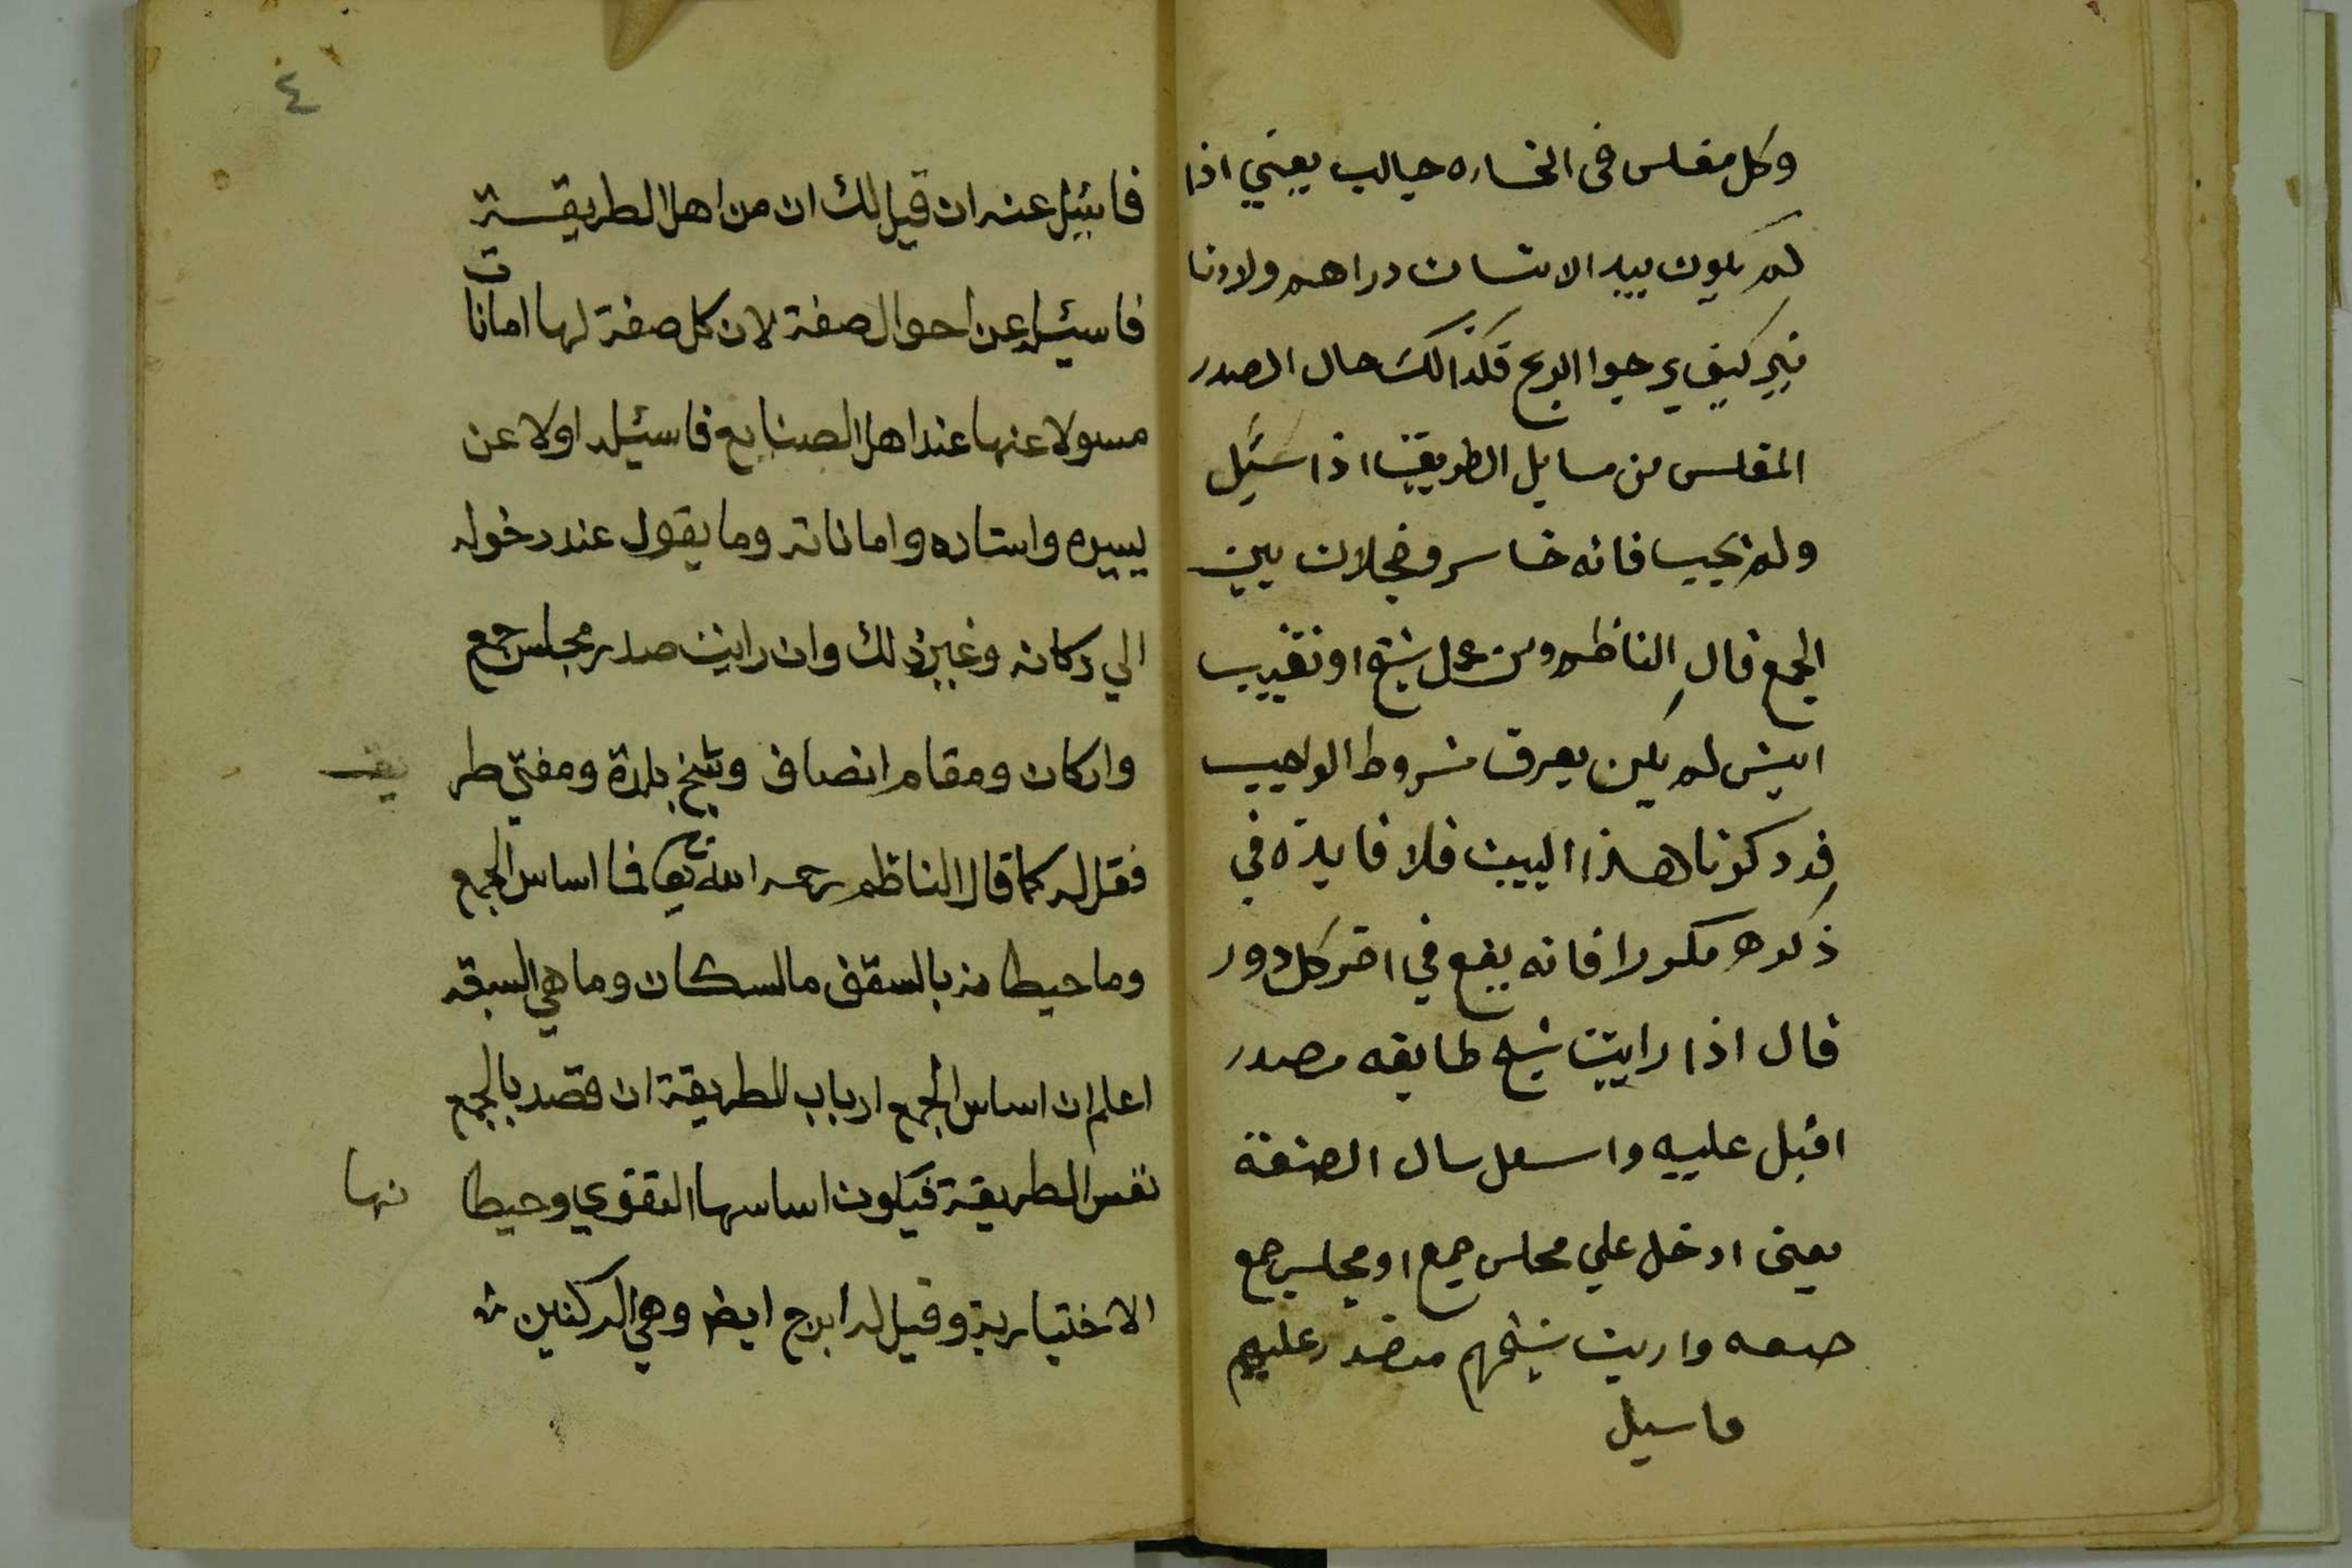 وكل مفلس فى الخساره حيالب يعني اذا
لم يكون بيد الانسان دراهم ولا دنا
نير كيف يرجوا الربح فكذالك حال الصدر
المفلس من مسايل الطريقة اذا سئيل
ولم يجيب فانه خاسر وخجلان بين
الجمع قال الناظم ومن عمل شيخ او نقيب
ايش لم يكن يعرف شروط الواجب
قد ذكرنا هذا البيت فلا فايدة في
ذكره مكررا فانه يقع في اخر كل دور
قال اذا راييت شيخ طايفه مصدر
اقبل عليه واسعل سال الصنعة
يعنى ادخل علي مجلس جمع او مجلس جمع
صنعه واريت شيخهم متصدر عليهم
فاسيل
٤
فاسئيل عنه ان قيل لك ان من اهل الطريقة
فاسئيل عن احوال صفة لان كل صفة لها امانات
مسولا عنها عند اهل الصنايع فاسئيله اولا عن
يبيره واستاده واماناته وما يقول عند دخوله
الي دكانه وغير ذلك وان رايت صدر مجلس جمع
واركان ومقام انصاف وشيخ بلدة ومفتي طر يقـ
فقل له كما قال الناظم رحمه الله تعالى فما اساس الجمع
وما حيطانه بالسقف مالسكان وما هي السبقه
اعلم ان اساس الجمع ارباب للطريقة ان قصد بالجمع
نفس الطريقة فيكون اساسها التقوي وحيطا نها
الاختيارية وقيل له ابرج ايضا وهي الركنين